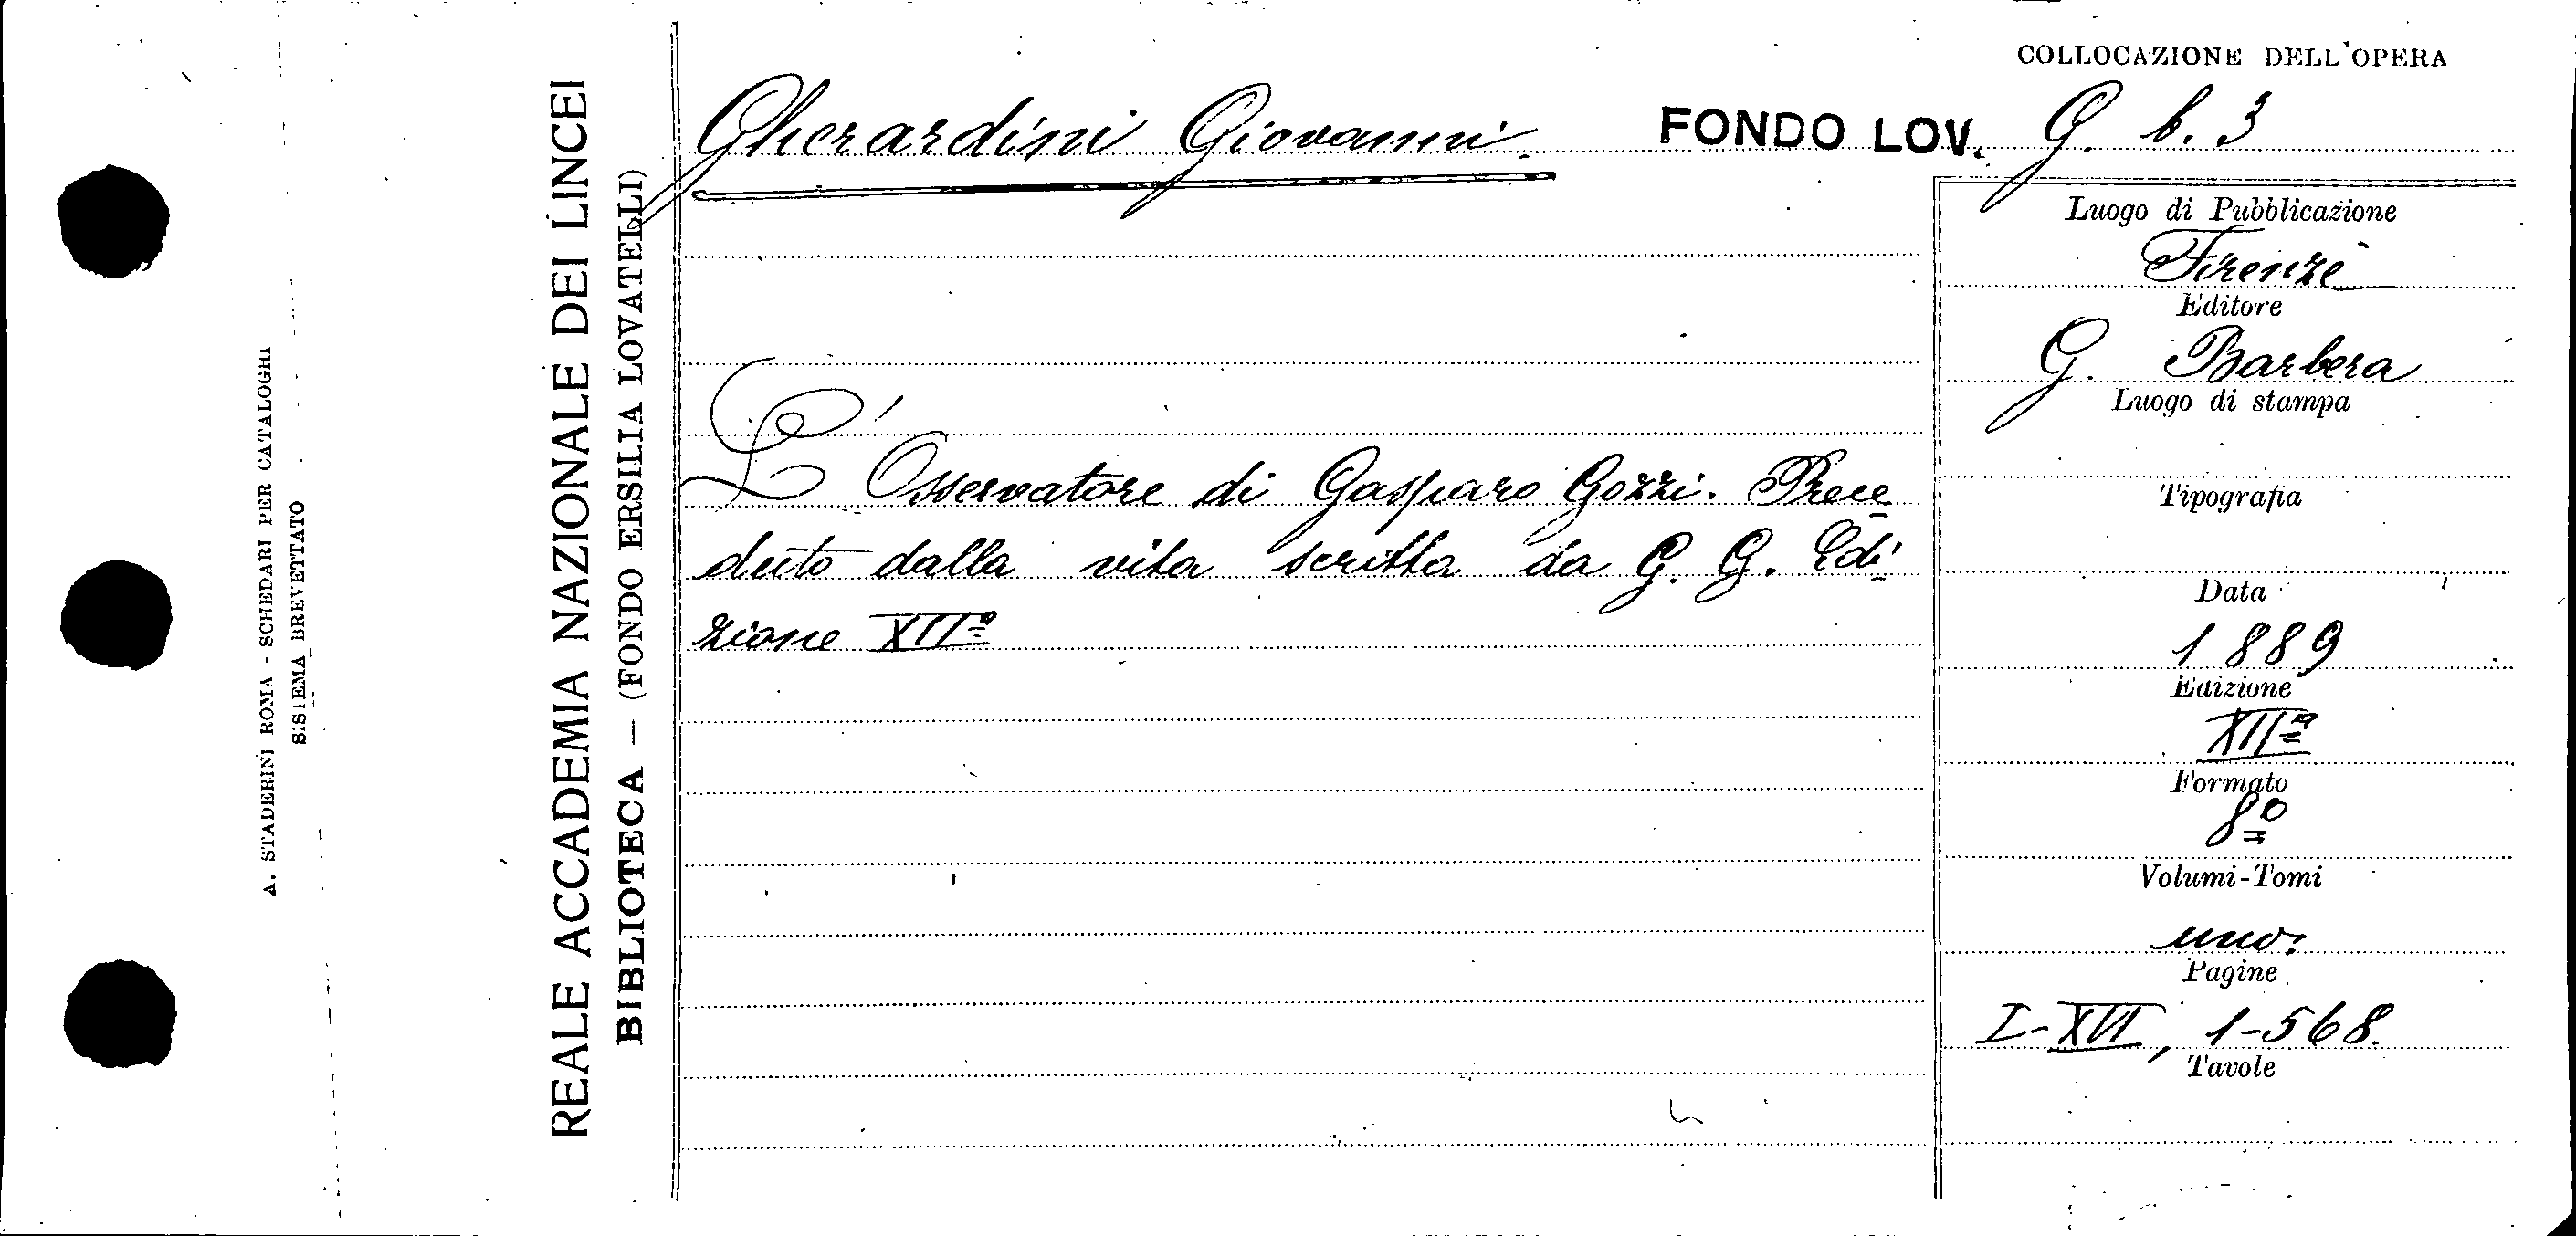 A. STADERINI ROMA - SCHEDARI PER CATALOGHI
SISTEMA BREVETTATO
REALE ACCADEMIA NAZIONALE DEI LINCEI
BIBLIOTECA — (FONDO ERSILIA LOVATELLI)
COLLOCAZIONE DELL'OPERA
Gherardini Giovanni. FONDO LOV. G. b. 3
L'Osservatore di Gasparo Gozzi. Prece
duto dalla vita scritta da G. G. Edi
zione XIIª
Luogo di Pubblicazione
Firenze
Editore
G. Barbera
Luogo di stampa
Tipografia
Data
1889
Edizione
XIIª
Formato
8º
Volumi-Tomi
uno.
Pagine
I-XVI, 1-568.
Tavole